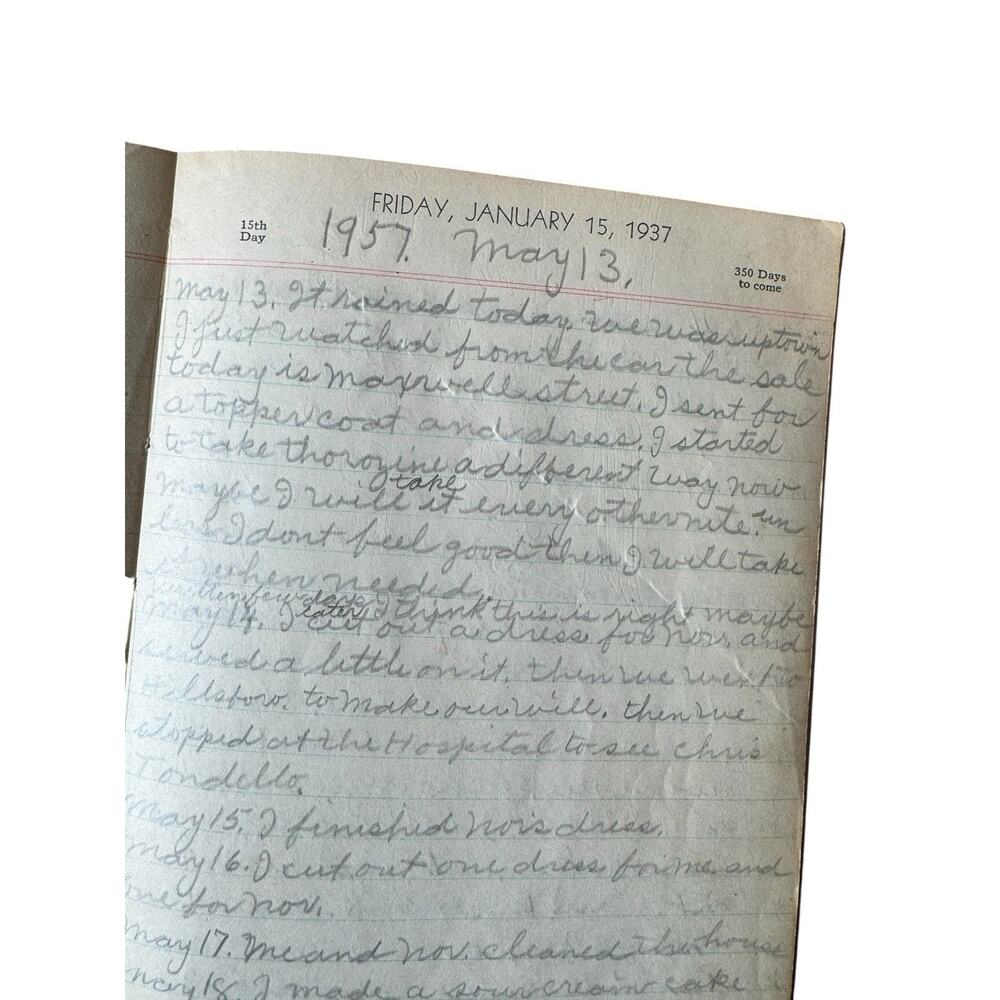 FRIDAY, JANUARY 15, 1937
15th
Day
1957. May 13.
350 Days
to come
May 13. It rained today, we was uptown
I just watched from the car the sale
today is Maxwell street. I sent for
a topper coat and dress. I started
to take thorozine a different way now
maybe I will take it every other nite. un
less I dont feel good then I will take
it when needed,
written few days later I think this is right maybe
May 14. I cut out a dress for Nov. and
sewed a little on it. then we went to
Hillsboro. to make our will. then we
stopped at the Hospital to see Chris
Tondello.
May 15. I finished Nov's dress.
May 16. I cut out one dress for me and
one for Nov.
May 17. Me and Nov. cleaned the house
May 18. I made a sour cream cake